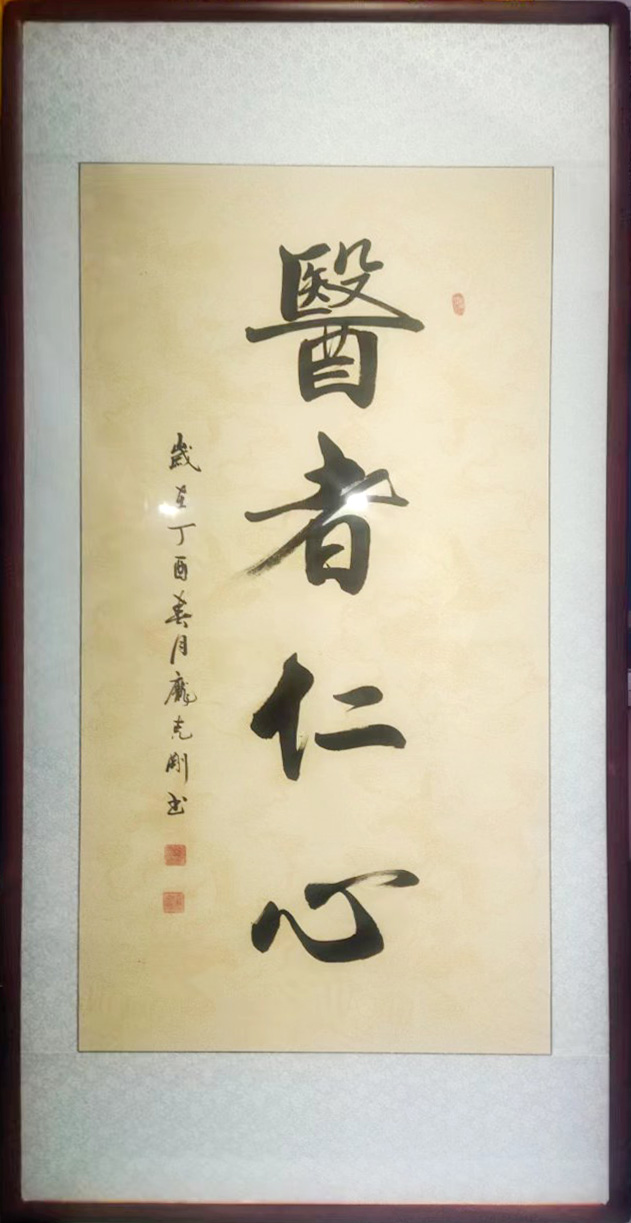 醫者仁心
歲在丁酉春月龐克剛书